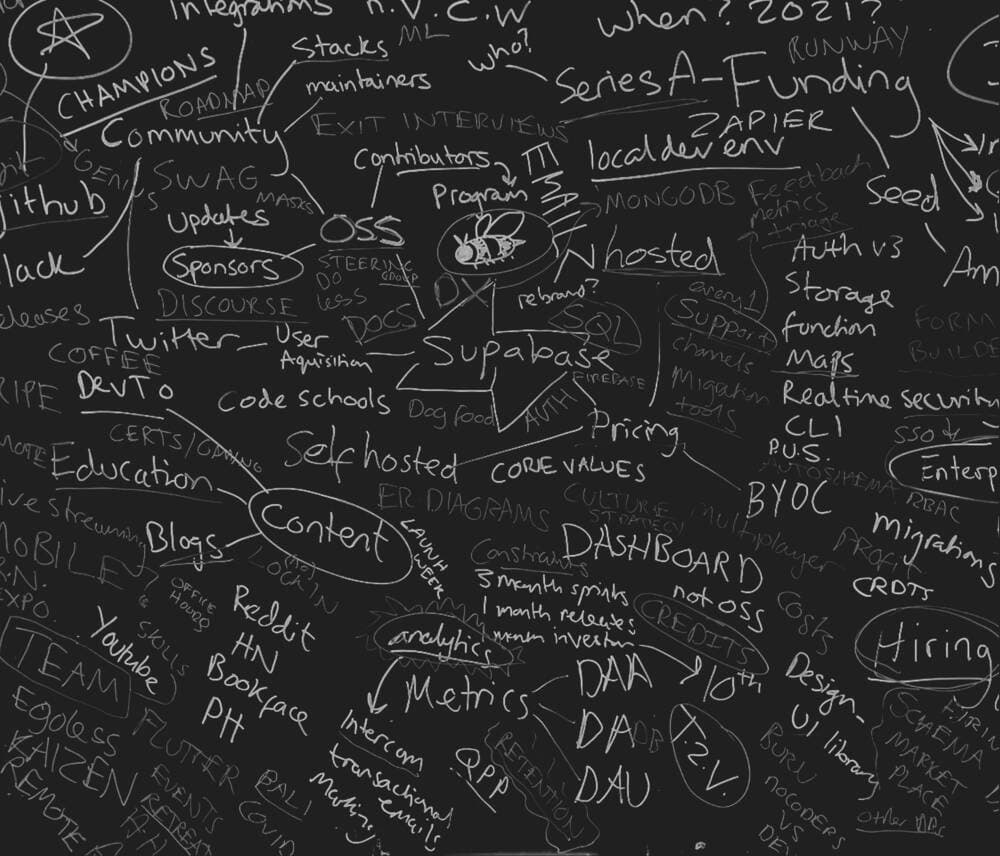 Integrations
N.V.C.W
when? 2021?
Stacks
ML
who?
RUNWAY
CHAMPIONS
maintainers
Series A-Funding
ROADMAP
Community
EXIT INTERVIEWS
ZAPIER
Contributors
local dev env
SWAG
MASKS
Program
EMAIL
MONGODB
Feedback
Metrics
triage
Seed
Github
Updates
OSS
Sponsors
STEERING
GROUP
DO
less
hosted
Auth v3
Storage
function
Maps
Realtime security
CLI
P.U.S.
DISCOURSE
DOCS
DX
rebrand?
SQL
every1
Support
channels
Migration
tools
Twitter
User
Aquisition
Supabase
FIREBASE
COFFEE
DevTo
Code schools
Dog food
AUTH
Pricing
SSO
CERTS/
Education
Self hosted
CORE VALUES
BYOC
RBAC
ER DIAGRAMS
CULTURE
STRATEGY
Multi
player
Content
LAUNCH
WEEK
Blogs
(no)
LOCK IN
DASHBOARD
migrations
PROFIT
CRDTS
MOBILE
OFFICE
HOURS
3 month sprints
1 month releases
not OSS
CREDITS
10th
Costs
Hiring
EXPO
Reddit
HN
Bookface
PH
analytics
Metrics
DAA
DADB
DAU
T.2.V.
Youtube
SKILLS
TEAM
Design
UI library
SCHEMA
MARKET
PLACE
Egoless
KAIZEN
REMOTE
FLUTTER
EVENTS
RETREAT
BALI
COVID
Intercom
transactional
emails
QPP
RETENTION
BURN
nocoders
VS